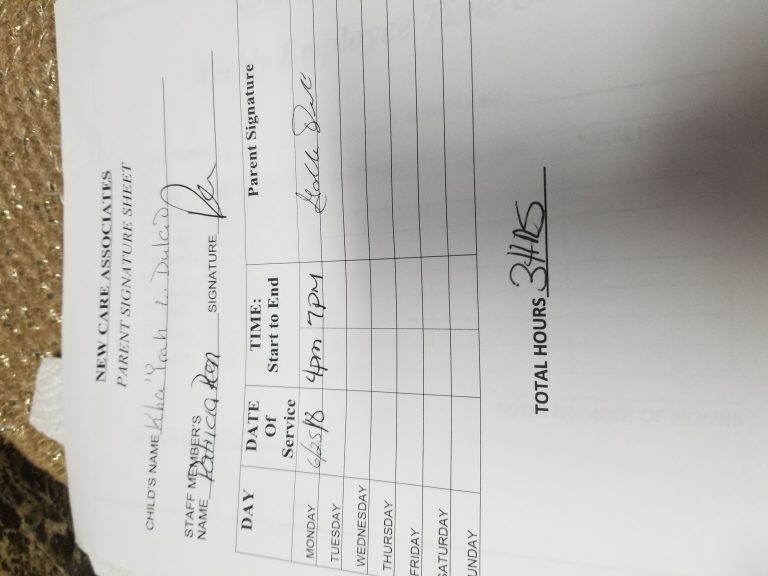 NEW CARE ASSOCIATES
PARENT SIGNATURE SHEET
CHILD'S NAME Kha'Yrah L. Dulcio
STAFF MEMBER'S
NAME Patricia SIGNATURE
DAY DATE Of Service TIME: Start to End Parent Signature
MONDAY 6/25/18 4pm 7PM
TUESDAY
WEDNESDAY
THURSDAY
FRIDAY
SATURDAY
UNDAY
TOTAL HOURS 3HRS